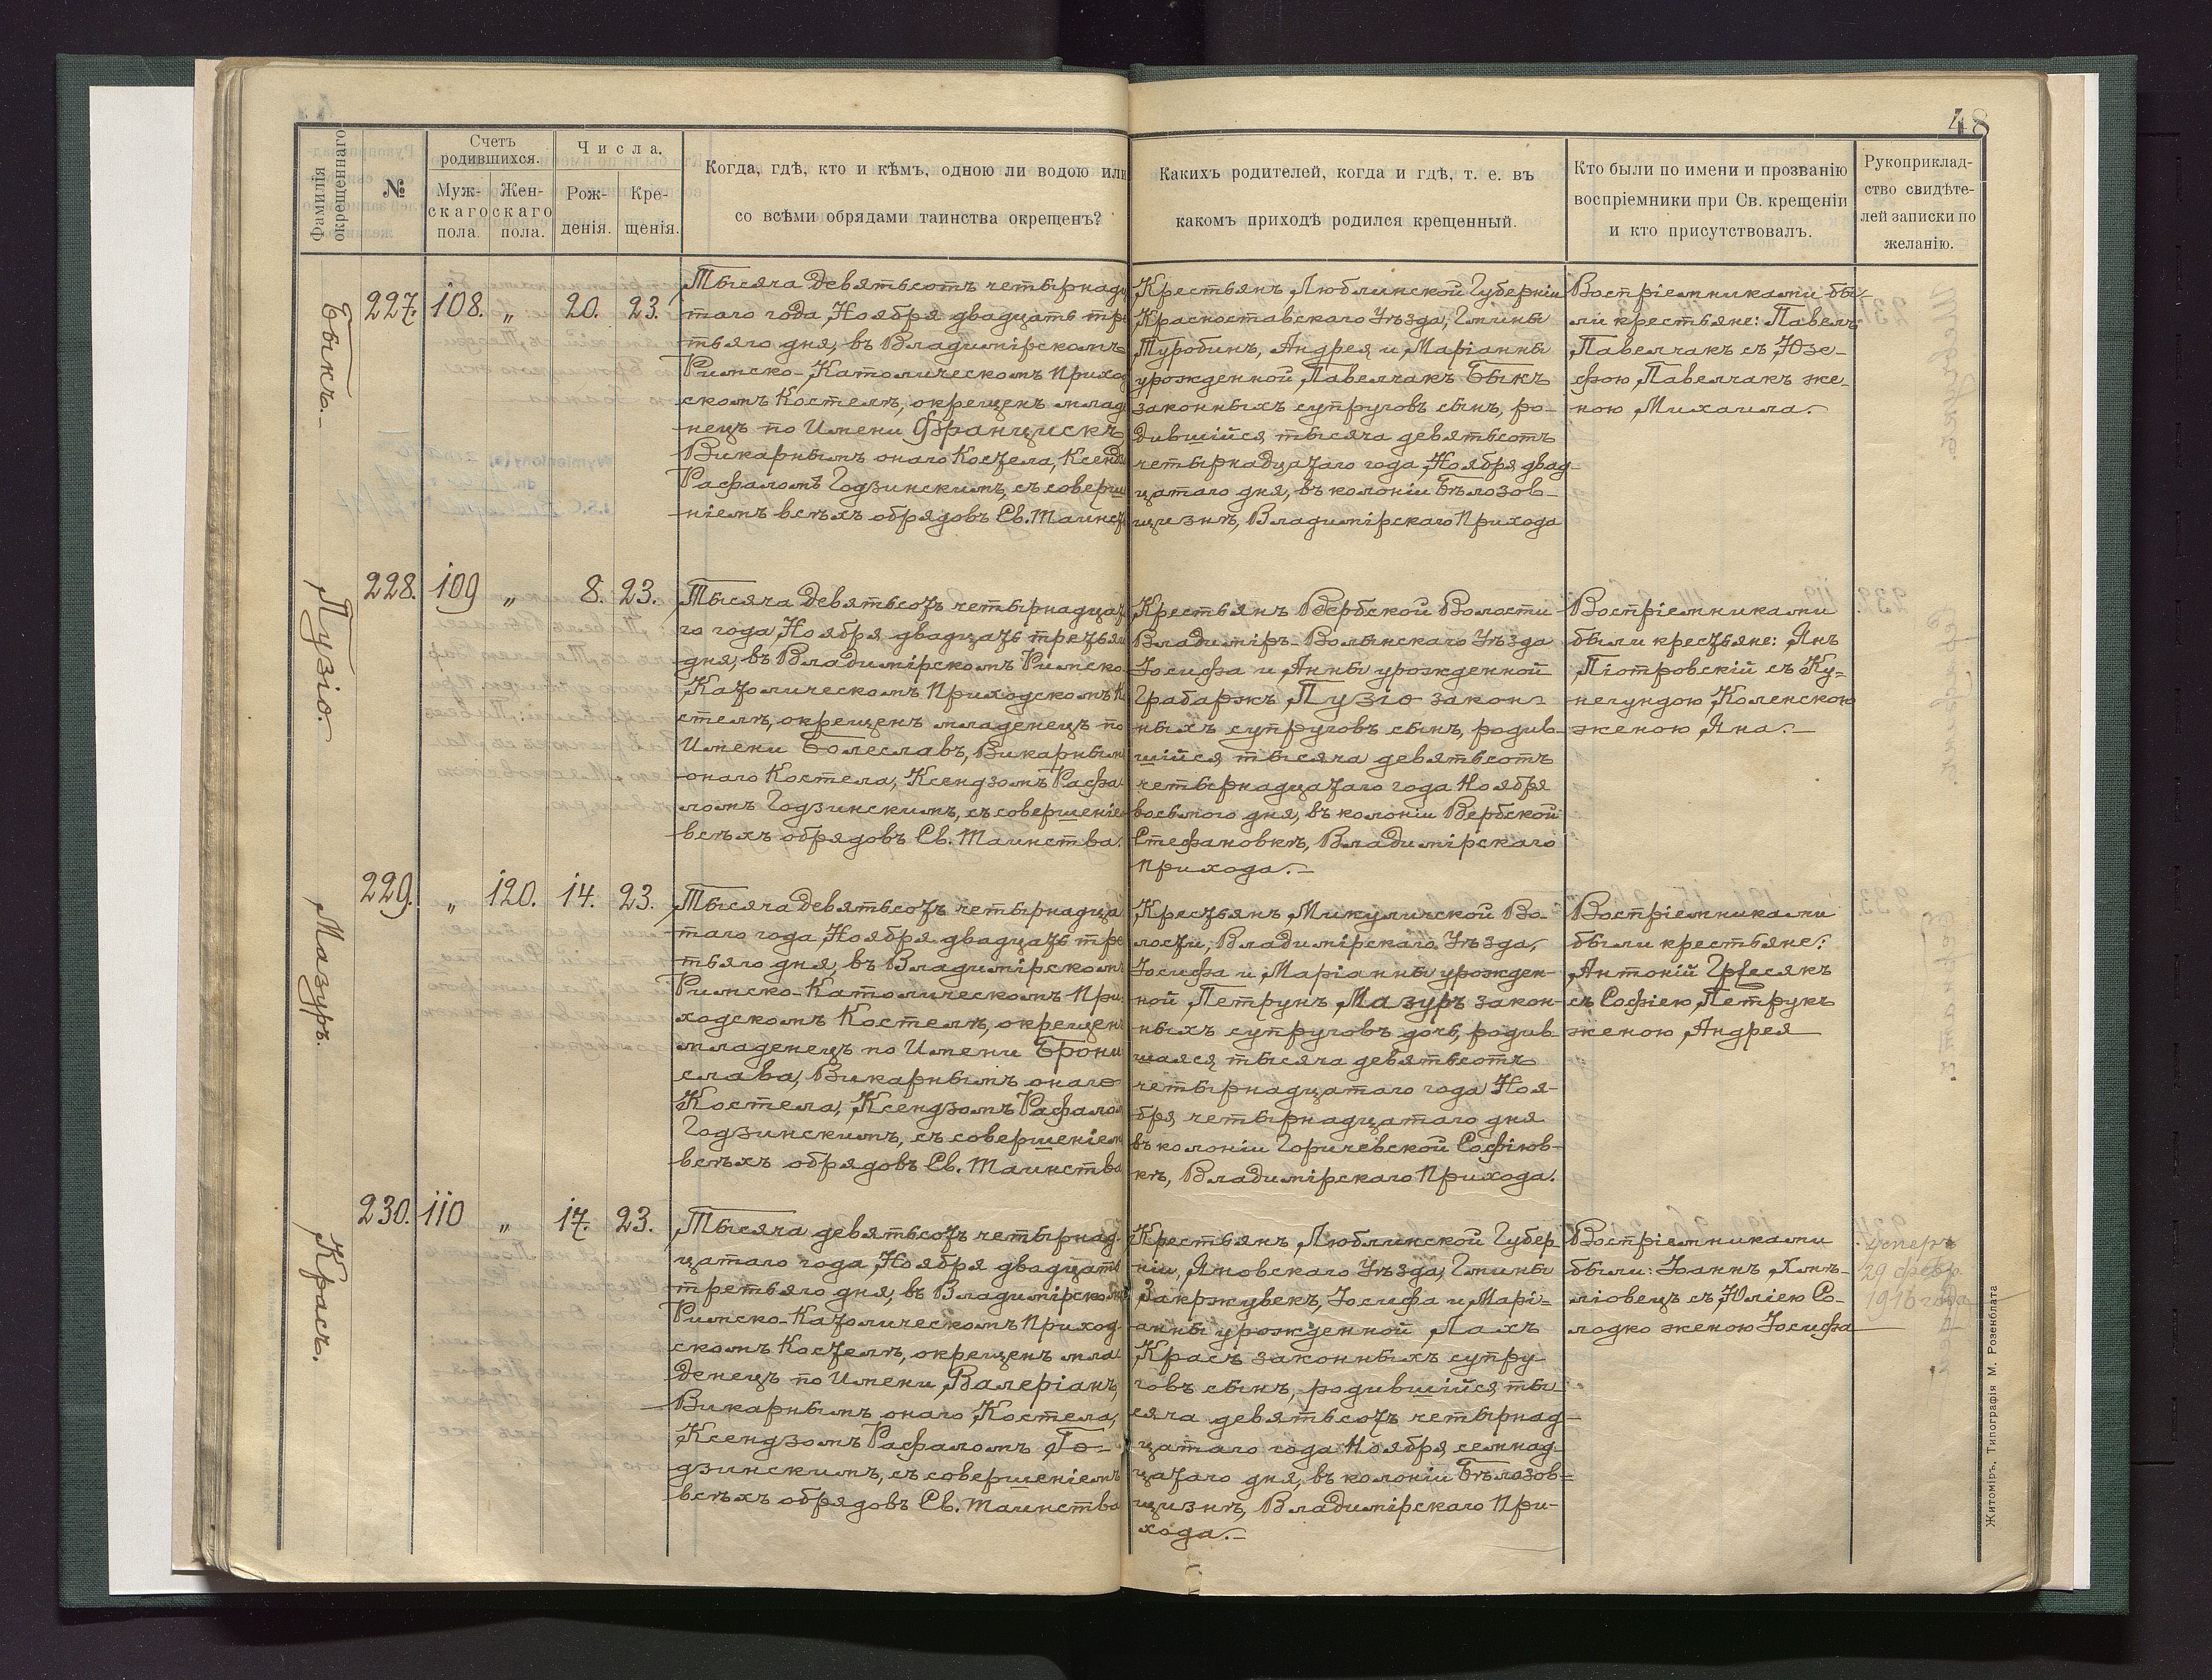 48
Фамилія окрещеннаго
№
Счетъ родившихся.
Мужскаго пола.
Женскаго пола.
Числа.
Рожденія.
Крещенія.
Когда, гдѣ, кто и кѣмъ, одною ли водою или
со всѣми обрядами таинства окрещенъ?
Какихъ родителей, когда и гдѣ, т. е. въ
какомъ приходѣ родился крещенный.
Кто были по имени и прозванію
воспріемники при Св. крещеніи
и кто присутствовалъ.
Рукоприклад-
ство свидѣте-
лей записки по
желанію.
Быкъ.
227. 108. „ 20. 23.
Тысяча девятьсотъ четырнадц
таго года, Ноября двадцать тре
тьяго дня, въ Владимірскомъ
Римско-Католическомъ Приход
скомъ Костелѣ, окрещенъ млад
нецъ по Имени Францискъ,
Викарнымъ онаго Костела, Ксендз
Рафаломъ Годзинскимъ, съ соверш
ніемъ всѣхъ обрядовъ Св. Таинст
Крестьянъ Люблинской Губерніи
Красноставскаго Уѣзда, Гмины
Туробинъ, Андрея и Маріанны
урожденной Павелчакъ Быкъ
законныхъ супруговъ сынъ, ро-
дившійся тысяча девятьсотъ
четырнадцатаго года, Ноября двад-
цатаго дня, въ колоніи Бѣлозов-
щизнѣ, Владимірскаго Прихода
Воспріемниками бы-
ли крестьяне: Павелъ
Павелчакъ съ Юзе-
фою Павелчакъ же-
ною Михаила.
Пузіо.
228. 109 „ 8. 23.
Тысяча девятьсотъ четырнадцат
го года, Ноября двадцать третьяг
дня, въ Владимірскомъ Римско-
Католическомъ Приходскомъ К
стелѣ, окрещенъ младенецъ по
Имени Болеславъ, Викарнымъ
онаго Костела, Ксендзомъ Рафа
ломъ Годзинскимъ, съ совершеніе
всѣхъ обрядовъ Св. Таинства.
Крестьянъ Вербской Волости
Владиміръ-Волынскаго Уѣзда
Іосифа и Анны урожденной
Грабаржъ Пузіо закон-
ныхъ супруговъ сынъ, родив-
шійся тысяча девятьсотъ
четырнадцатаго года Ноября
восьмого дня, въ колоніи Вербской
Стефановкѣ, Владимірскаго
Прихода.
Воспріемниками
были крестьяне: Янъ
Піотровскій съ Ку-
негундою Коленскою
женою Яна.
Мазуръ.
229. „ 120. 14. 23.
Тысяча девятьсотъ четырнадца
таго года, Ноября двадцать тре
тьяго дня, въ Владимірскомъ
Римско-Католическомъ При
ходскомъ Костелѣ, окрещенъ
младенецъ по Имени Брони
слава, Викарнымъ онаго
Костела, Ксендзомъ Рафалом
Годзинскимъ, съ совершеніем
всѣхъ обрядовъ Св. Таинства
Крестьянъ Микуличской Во-
лости, Владимірскаго Уѣзда,
Іосифа и Маріанны урожден-
ной Петрунъ Мазуръ закон-
ныхъ супруговъ дочь, родив-
шаяся тысяча девятьсотъ
четырнадцатаго года Ноя-
бря четырнадцатаго дня
въ колоніи Горичевской Софіюв-
кѣ, Владимірскаго Прихода.
Воспріемниками
были крестьяне:
Антоній
съ Софіею Петрукъ
женою Андрея
Красъ.
230. 110 „ 17. 23.
Тысяча девятьсотъ четырнад
цатаго года, Ноября двадцать
третьяго дня, въ Владимірскомъ
Римско-Католическомъ Приход
скомъ Костелѣ, окрещенъ мла
денецъ по Имени Валеріанъ,
Викарнымъ онаго Костела,
Ксендзомъ Рафаломъ Го-
дзинскимъ, съ совершеніемъ
всѣхъ обрядовъ Св. Таинства
Крестьянъ Люблинской Губер
ніи, Яновскаго Уѣзда, Гмины
Закржувекъ, Іосифа и Марі-
анны урожденной Лахъ
Красъ законныхъ супру
говъ сынъ, родившійся ты
сяча девятьсотъ четырнад-
цатаго года Ноября семнад-
цатаго дня, въ колоніи Бѣлозов-
щизнѣ, Владимірскаго При-
хода.
Воспріемниками
были: Іоаннъ Хмѣ-
ліовецъ съ Юліею Со-
лодко женою Іосифа
Умеръ
29 февр.
1916 года
Житоміръ. Типографія М. Розенблата